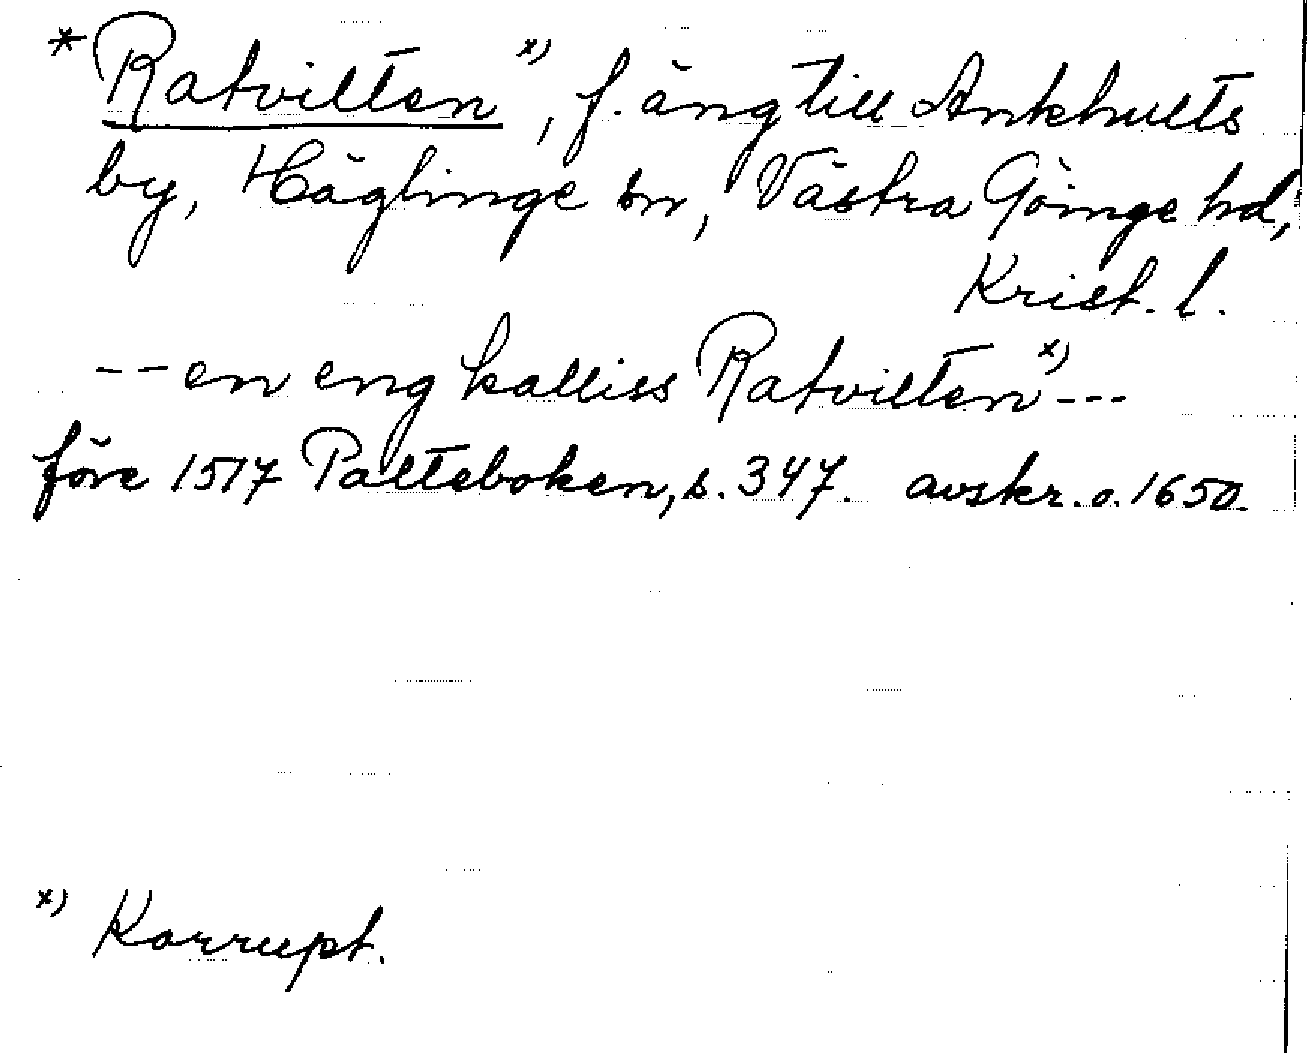 *Ratvilten x), f. äng till Ankhults
by, Häglinge sn, Västra Göinge hd,
Krist. l.
--en eng kalliss Ratvilten x)---
före 1517 Palteboken, s. 347. avskr. o. 1650.
x) Korrupt.